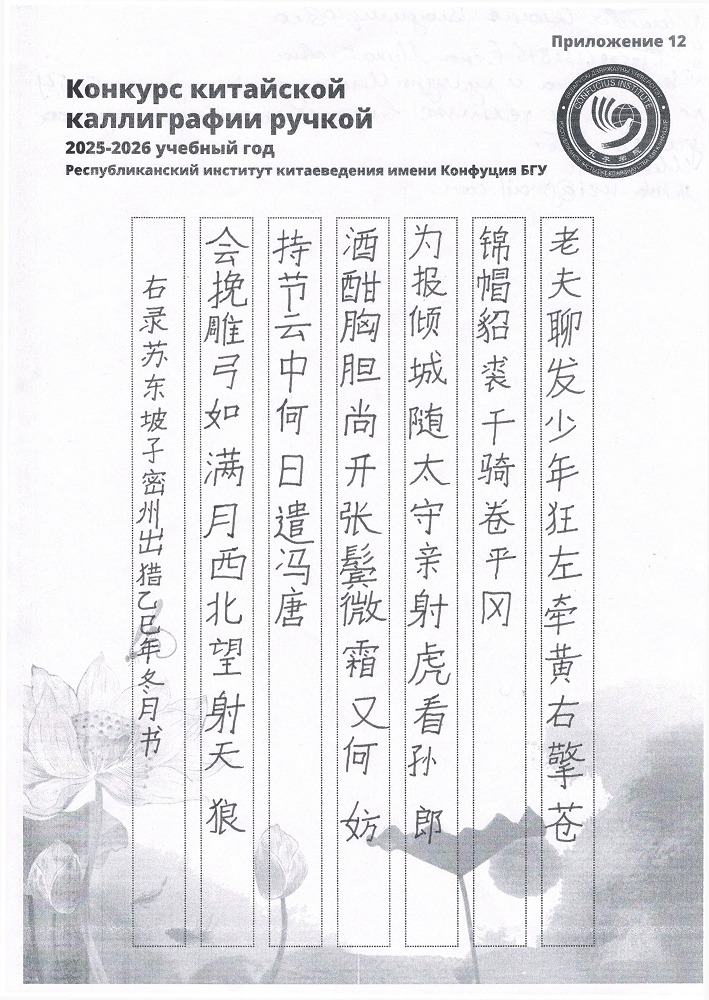 Приложение 12
Конкурс китайской
каллиграфии ручкой
2025-2026 учебный год
Республиканский институт китаеведения имени Конфуция БГУ
CONFUCIUS INSTITUTE
老夫聊发少年狂左牵黄右擎苍
锦帽貂裘千骑卷平冈
为报倾城随太守亲射虎看孙郎
酒酣胸胆尚开张鬓微霜又何妨
持节云中何日遣冯唐
会挽雕弓如满月西北望射天狼
右录苏东坡子密州出猎乙巳年冬月书